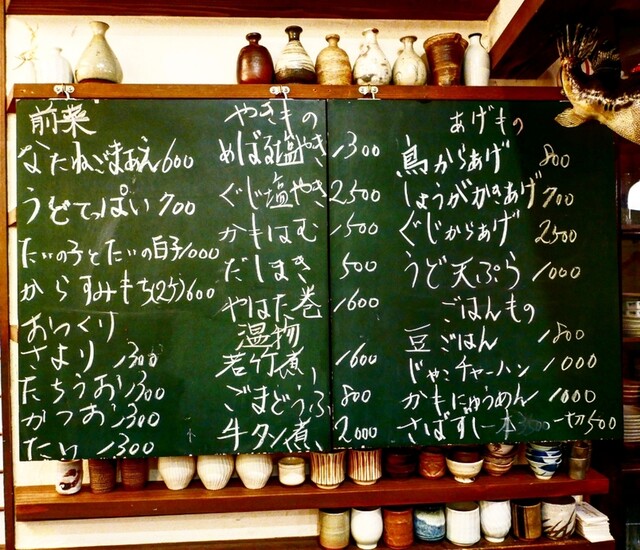 前菜
なたねごまあえ 600
うどてっぱい 700
たいの子とたいの白子 1000
からすみもち(2ケ) 600
おつくり
さより 1300
たちうお 1300
かつお 1300
たい 1300
やきもの
めばる塩やき 1300
ぐじ塩やき 2500
かもはむ 1500
だしまき 500
やはた巻 1600
温物
若竹煮 1600
ごまどうふ 800
牛タン煮 2000
あげもの
鳥からあげ 800
しょうがかきあげ 700
ぐじからあげ 2500
うど天ぷら 1000
ごはんもの
豆ごはん 1800
じゃこチャーハン 1000
かもにゅうめん 1000
さばずし 一本 一切500